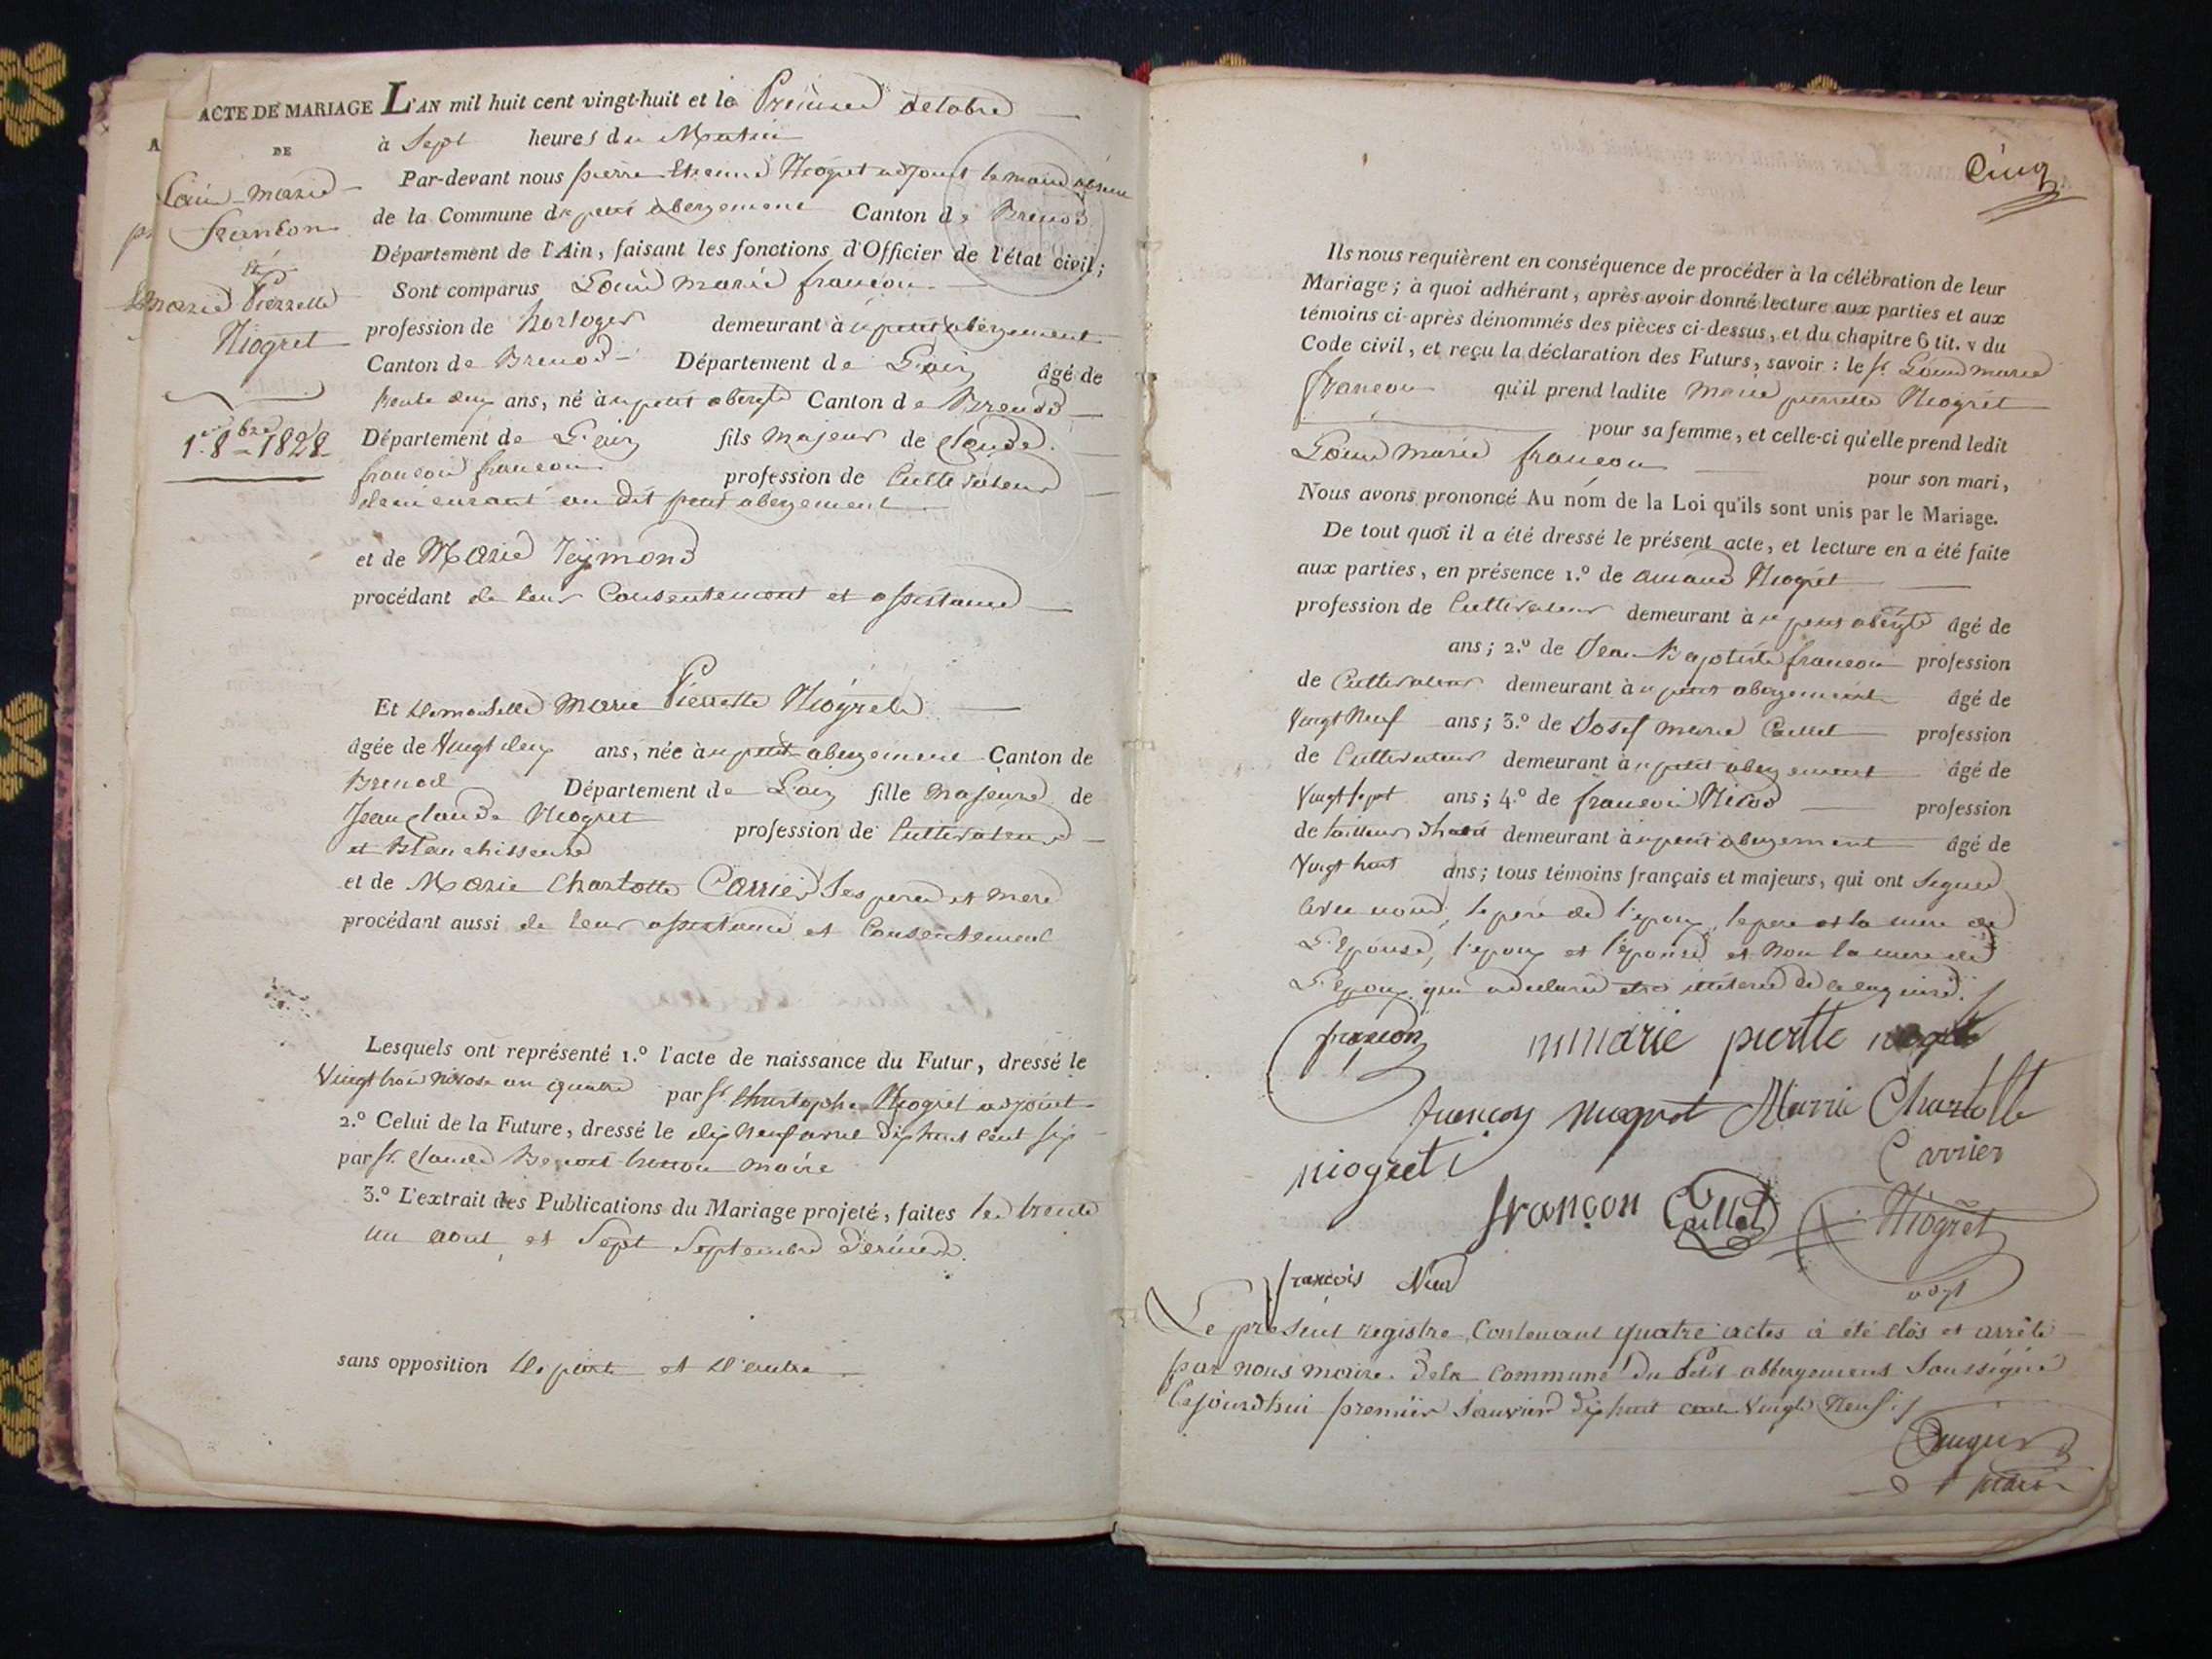 ACTE DE MARIAGE L'AN mil huit cent vingt-huit et le Premier octobre
DE
à Sept heures du Matin
Par-devant nous pierre Etienne Niogret adjoint le maire absent
de la Commune du petit abergement Canton de Brenod
Département de l'Ain, faisant les fonctions d'Officier de l'état civil;
Sont comparus Louis marie françon
profession de horloger demeurant à u petit abergement
Canton de Brenod Département de L'ain âgé de
trente deux ans, né à u petit abergt Canton de Brenod
Département de L'ain fils majeur de Claude
françois françon profession de Cultivateur
demeurant au dit petit abergement
et de Marie Reymond
procédant de leur Consentement et assistance
Louis-marie
françon
et
Marie Pierrette
Niogret
1er 8bre 1828
Et Demoiselle Marie Pierrette Niogret
âgée de Vingt deux ans, née à u petit abergement Canton de
Brenod Département de L'ain fille Majeure de
Jean claude Niogret profession de Cultivateur
et Blanchisseur
et de Marie Charlotte Carrier Ses pere et mere
procédant aussi de leur assistance et Consentement
Lesquels ont représenté 1.º l'acte de naissance du Futur, dressé le
Vingt trois nivose an quatre par Sr. Christophe Niogret adjoint
2.º Celui de la Future, dressé le dix Neuf avril dix huit Cent six
par Sr. Claude Benoit maire
3.º L'extrait des Publications du Mariage projeté, faites les trente
un aout et Sept Septembre derniers
sans opposition De part et D'autre
Cinq
Ils nous requièrent en conséquence de procéder à la célébration de leur
Mariage; à quoi adhérant, après avoir donné lecture aux parties et aux
témoins ci-après dénommés des pièces ci-dessus, et du chapitre 6 tit. v du
Code civil, et reçu la déclaration des Futurs, savoir : le Sr. Louis marie
françon qu'il prend ladite Marie pierrette Niogret
pour sa femme, et celle-ci qu'elle prend ledit
Louis Marie françon pour son mari,
Nous avons prononcé Au nom de la Loi qu'ils sont unis par le Mariage.
De tout quoi il a été dressé le présent acte, et lecture en a été faite
aux parties, en présence 1.º de amand Niogret
profession de Cultivateur demeurant à u petit abergt âgé de
ans; 2.º de Jean Baptiste françon profession
de Cultivateur demeurant à u petit abergement âgé de
Vingt Neuf ans; 3.º de Josef marie Caillet profession
de Cultivateur demeurant à u petit abergement âgé de
Vingt sept ans; 4.º de françois Nicod profession
de tailleur d'habit demeurant à u petit abergement âgé de
Vingt huit ans; tous témoins français et majeurs, qui ont Signé
avec nous, le pere de l'epoux, le pere et la mere de
L'Epouse, l'epoux et l'épouse et non la mere de
L'Epoux qui a declaré etre illiterée de ce enquise.
françon mmarie piertte niogret
françon niogret Marrie Charlotte
Carrier
niogret
françon Caillet Niogret
adjt
francois Nicod
Le présent registre Contenant quatre actes a été clos et arrêté
par nous maire de la Commune du Petit abbergement Soussigné
Cejourd'hui premier Janvier dix huit cent Vingt Neuf
maire